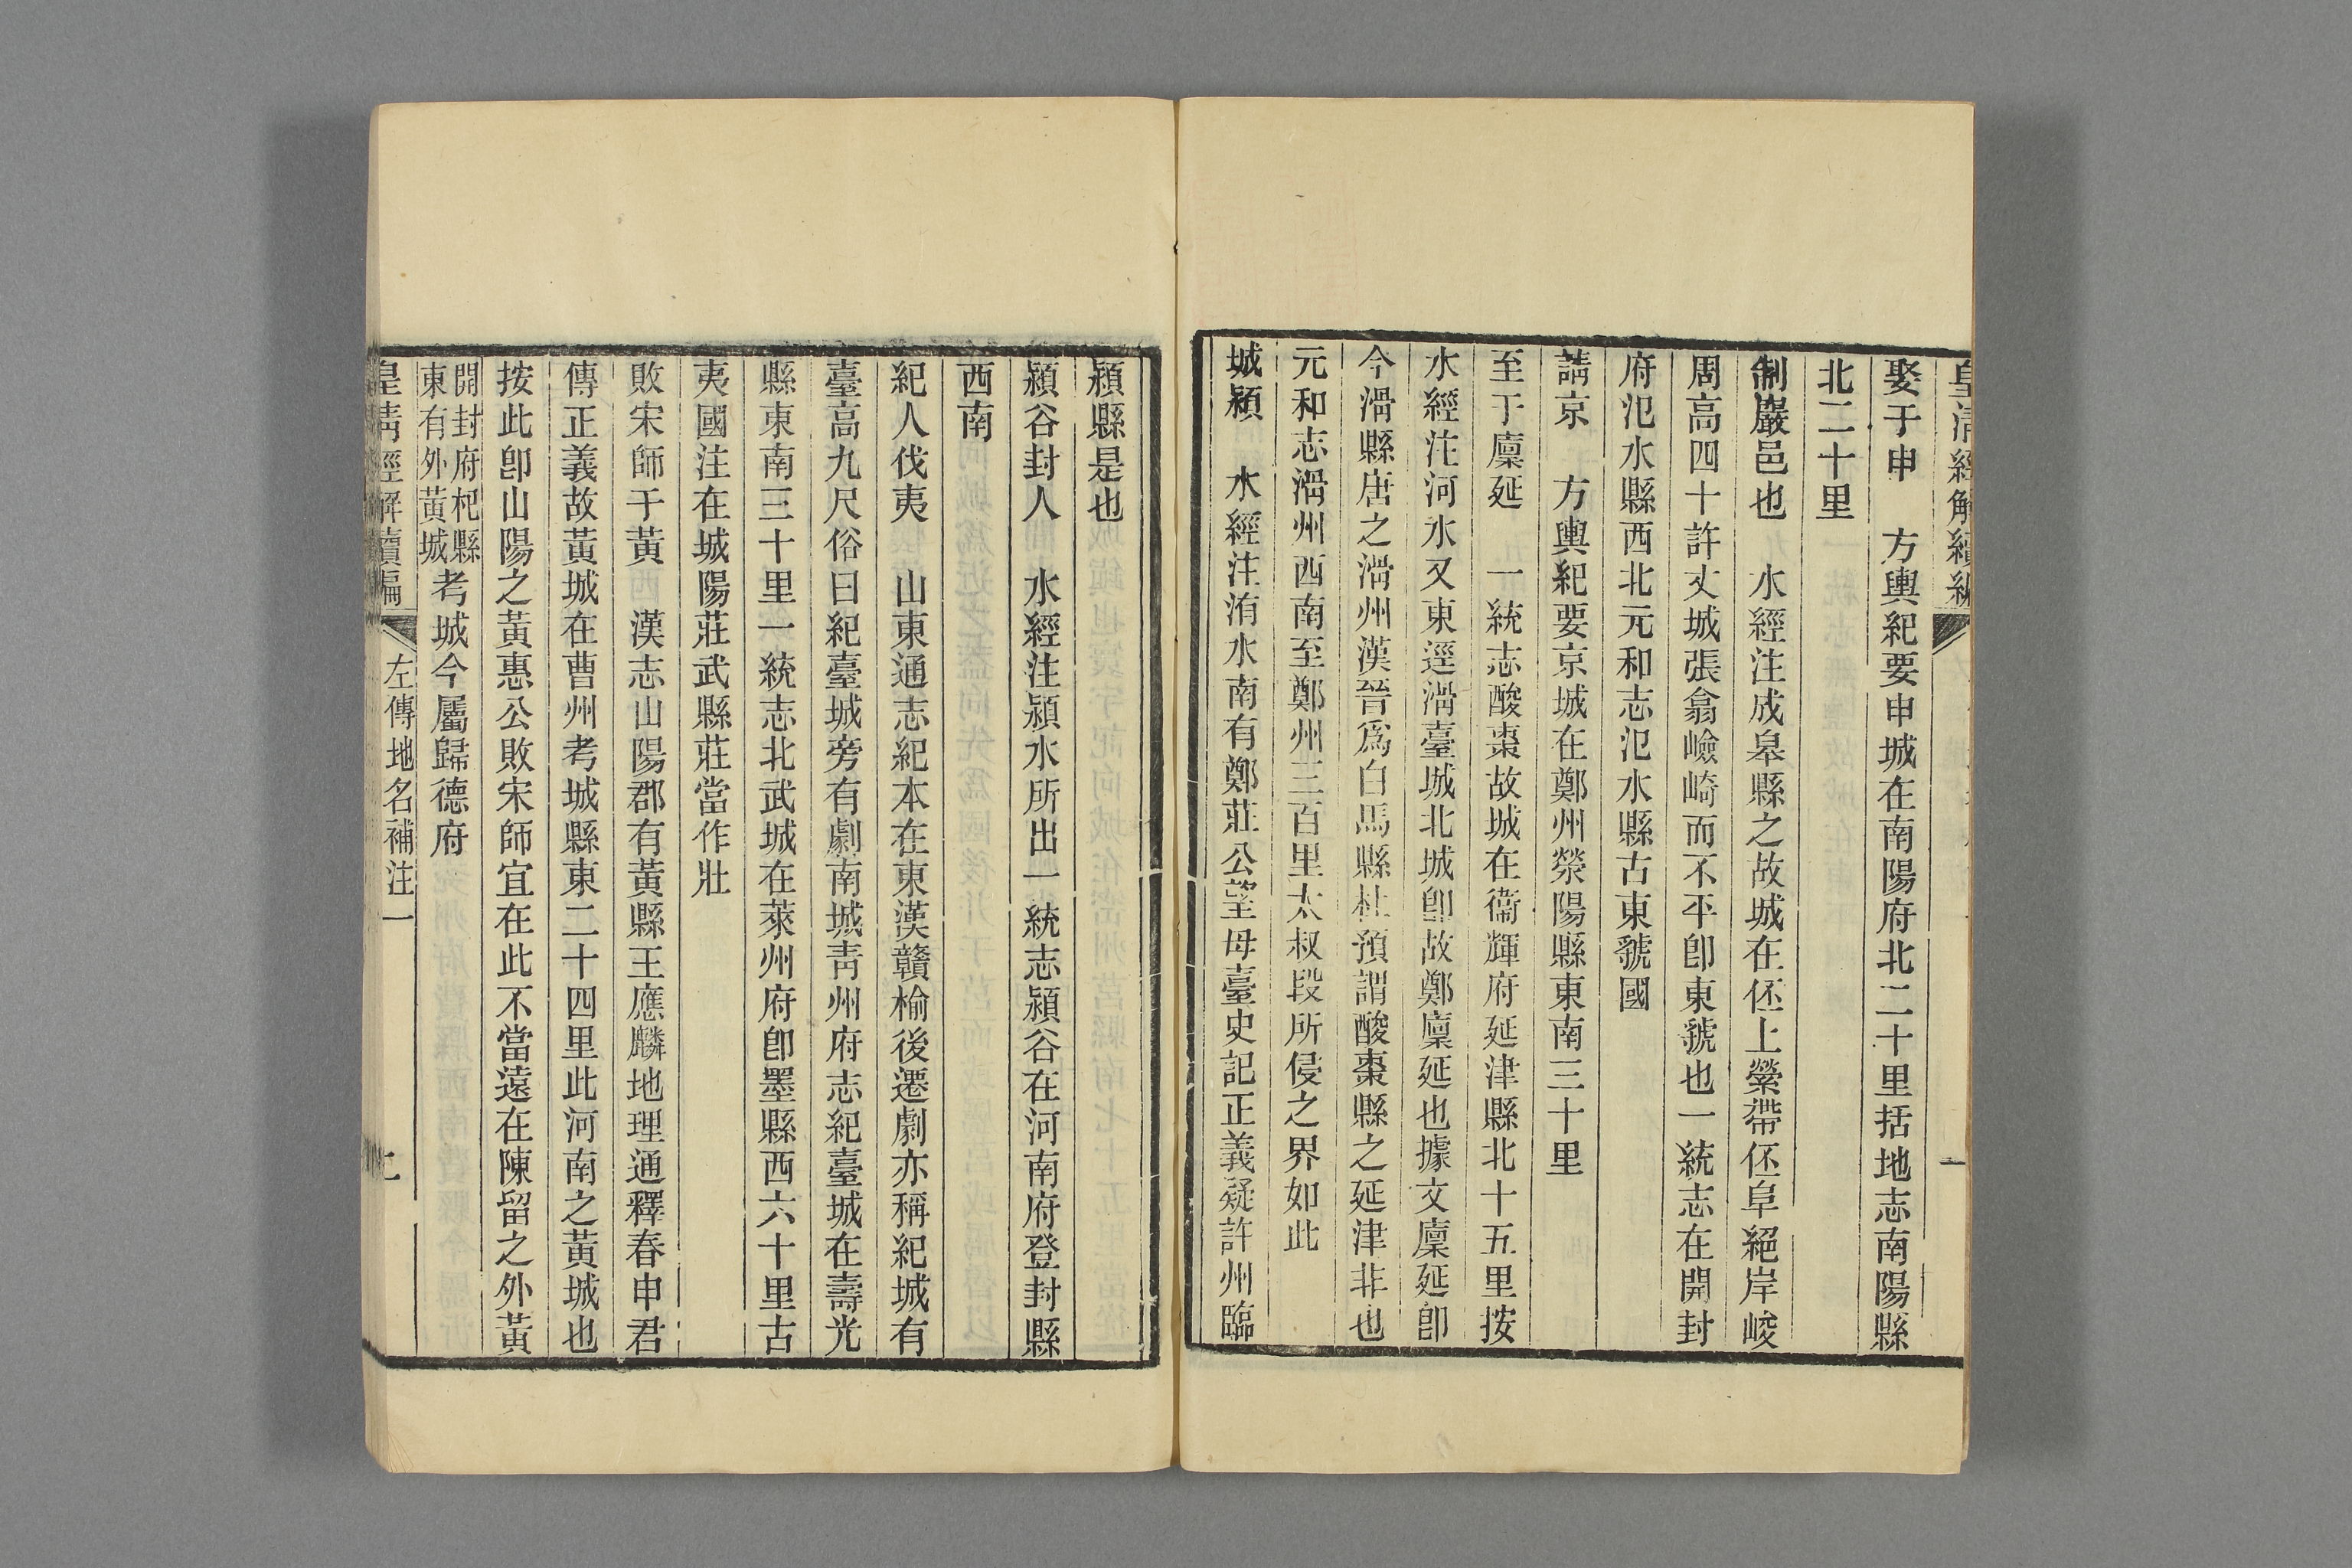 皇淸經解續編
一
娶于申　方輿紀要申城在南陽府北二十里括地志南陽縣
北二十里
制巖邑也　水經注成皋縣之故城在伾上縈帶伾阜絕岸峻
周高四十許丈城張翕嶮崎而不平卽東虢也一統志在開封
府汜水縣西北元和志汜水縣古東虢國
請京　方輿紀要京城在鄭州滎陽縣東南三十里
至于廩延　一統志酸棗故城在衞輝府延津縣北十五里按
水經注河水又東逕滑臺城北城卽故鄭廩延也據文廩延卽
今滑縣唐之滑州漢晉爲白馬縣杜預謂酸棗縣之延津非也
元和志滑州西南至鄭州三百里太叔段所侵之界如此
城潁　水經注洧水南有鄭莊公望母臺史記正義疑許州臨
潁縣是也
潁谷封人　水經注潁水所出一統志潁谷在河南府登封縣
西南
紀人伐夷　山東通志紀本在東漢贛榆後遷劇亦稱紀城有
臺高九尺俗曰紀臺城旁有劇南城靑州府志紀臺城在壽光
縣東南三十里一統志北武城在萊州府卽墨縣西六十里古
夷國注在城陽莊武縣莊當作壯
敗宋師于黃　漢志山陽郡有黃縣王應麟地理通釋春申君
傳正義故黃城在曹州考城縣東二十四里此河南之黃城也
按此卽山陽之黃惠公敗宋師宜在此不當遠在陳留之外黃
開封府杞縣
東有外黃城
考城今屬歸德府
皇淸經解續編
左傳地名補注一
二